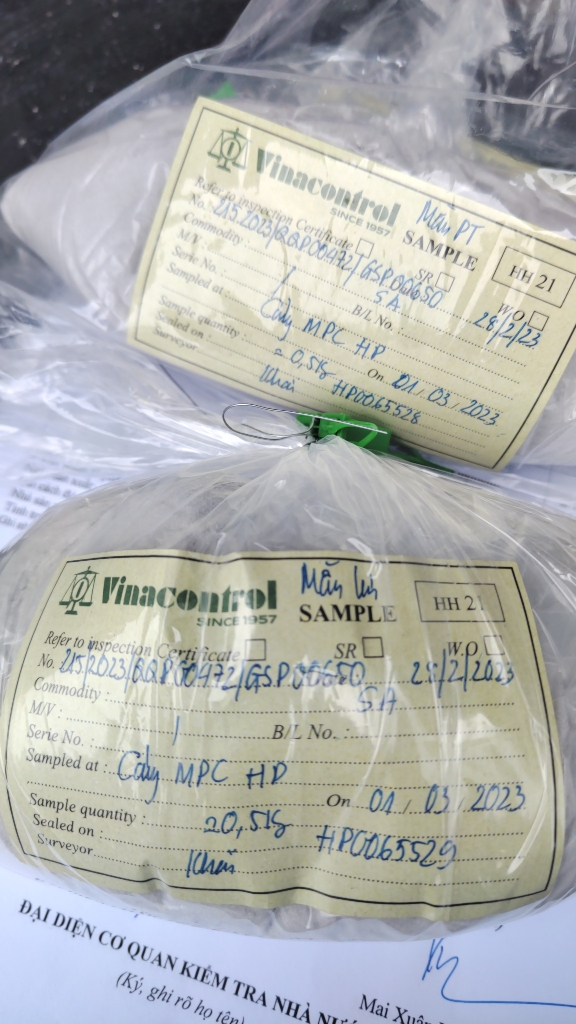 Vinacontrol
SINCE 1957
Mẫu PT
SAMPLE
HH 21
Refer to inspection Certificate
SR
W.O
No. 215/2023/BQP00472/GSP00650
28/2/23
Commodity : SA
M/V :
Serie No. : 1
B/L No. :
Sampled at : Cảng MPC HP
On 01/03/2023
Sample quantity : 0,5kg
Sealed on : HP0065528
Surveyor Khải
Vinacontrol
SINCE 1957
Mẫu lưu
SAMPLE
HH 21
Refer to inspection Certificate
SR
W.O
No. 215/2023/BQP00472/GSP00650 28/2/2023
Commodity : SA
M/V :
Serie No. : 1 B/L No. :
Sampled at : Cảng MPC HP
On 01/03/2023
Sample quantity : 0,5kg
Sealed on : HP0065529
Surveyor Khải
ĐẠI DIỆN CƠ QUAN KIỂM TRA NHÀ
(Ký, ghi rõ họ tên)
Mai Xuân